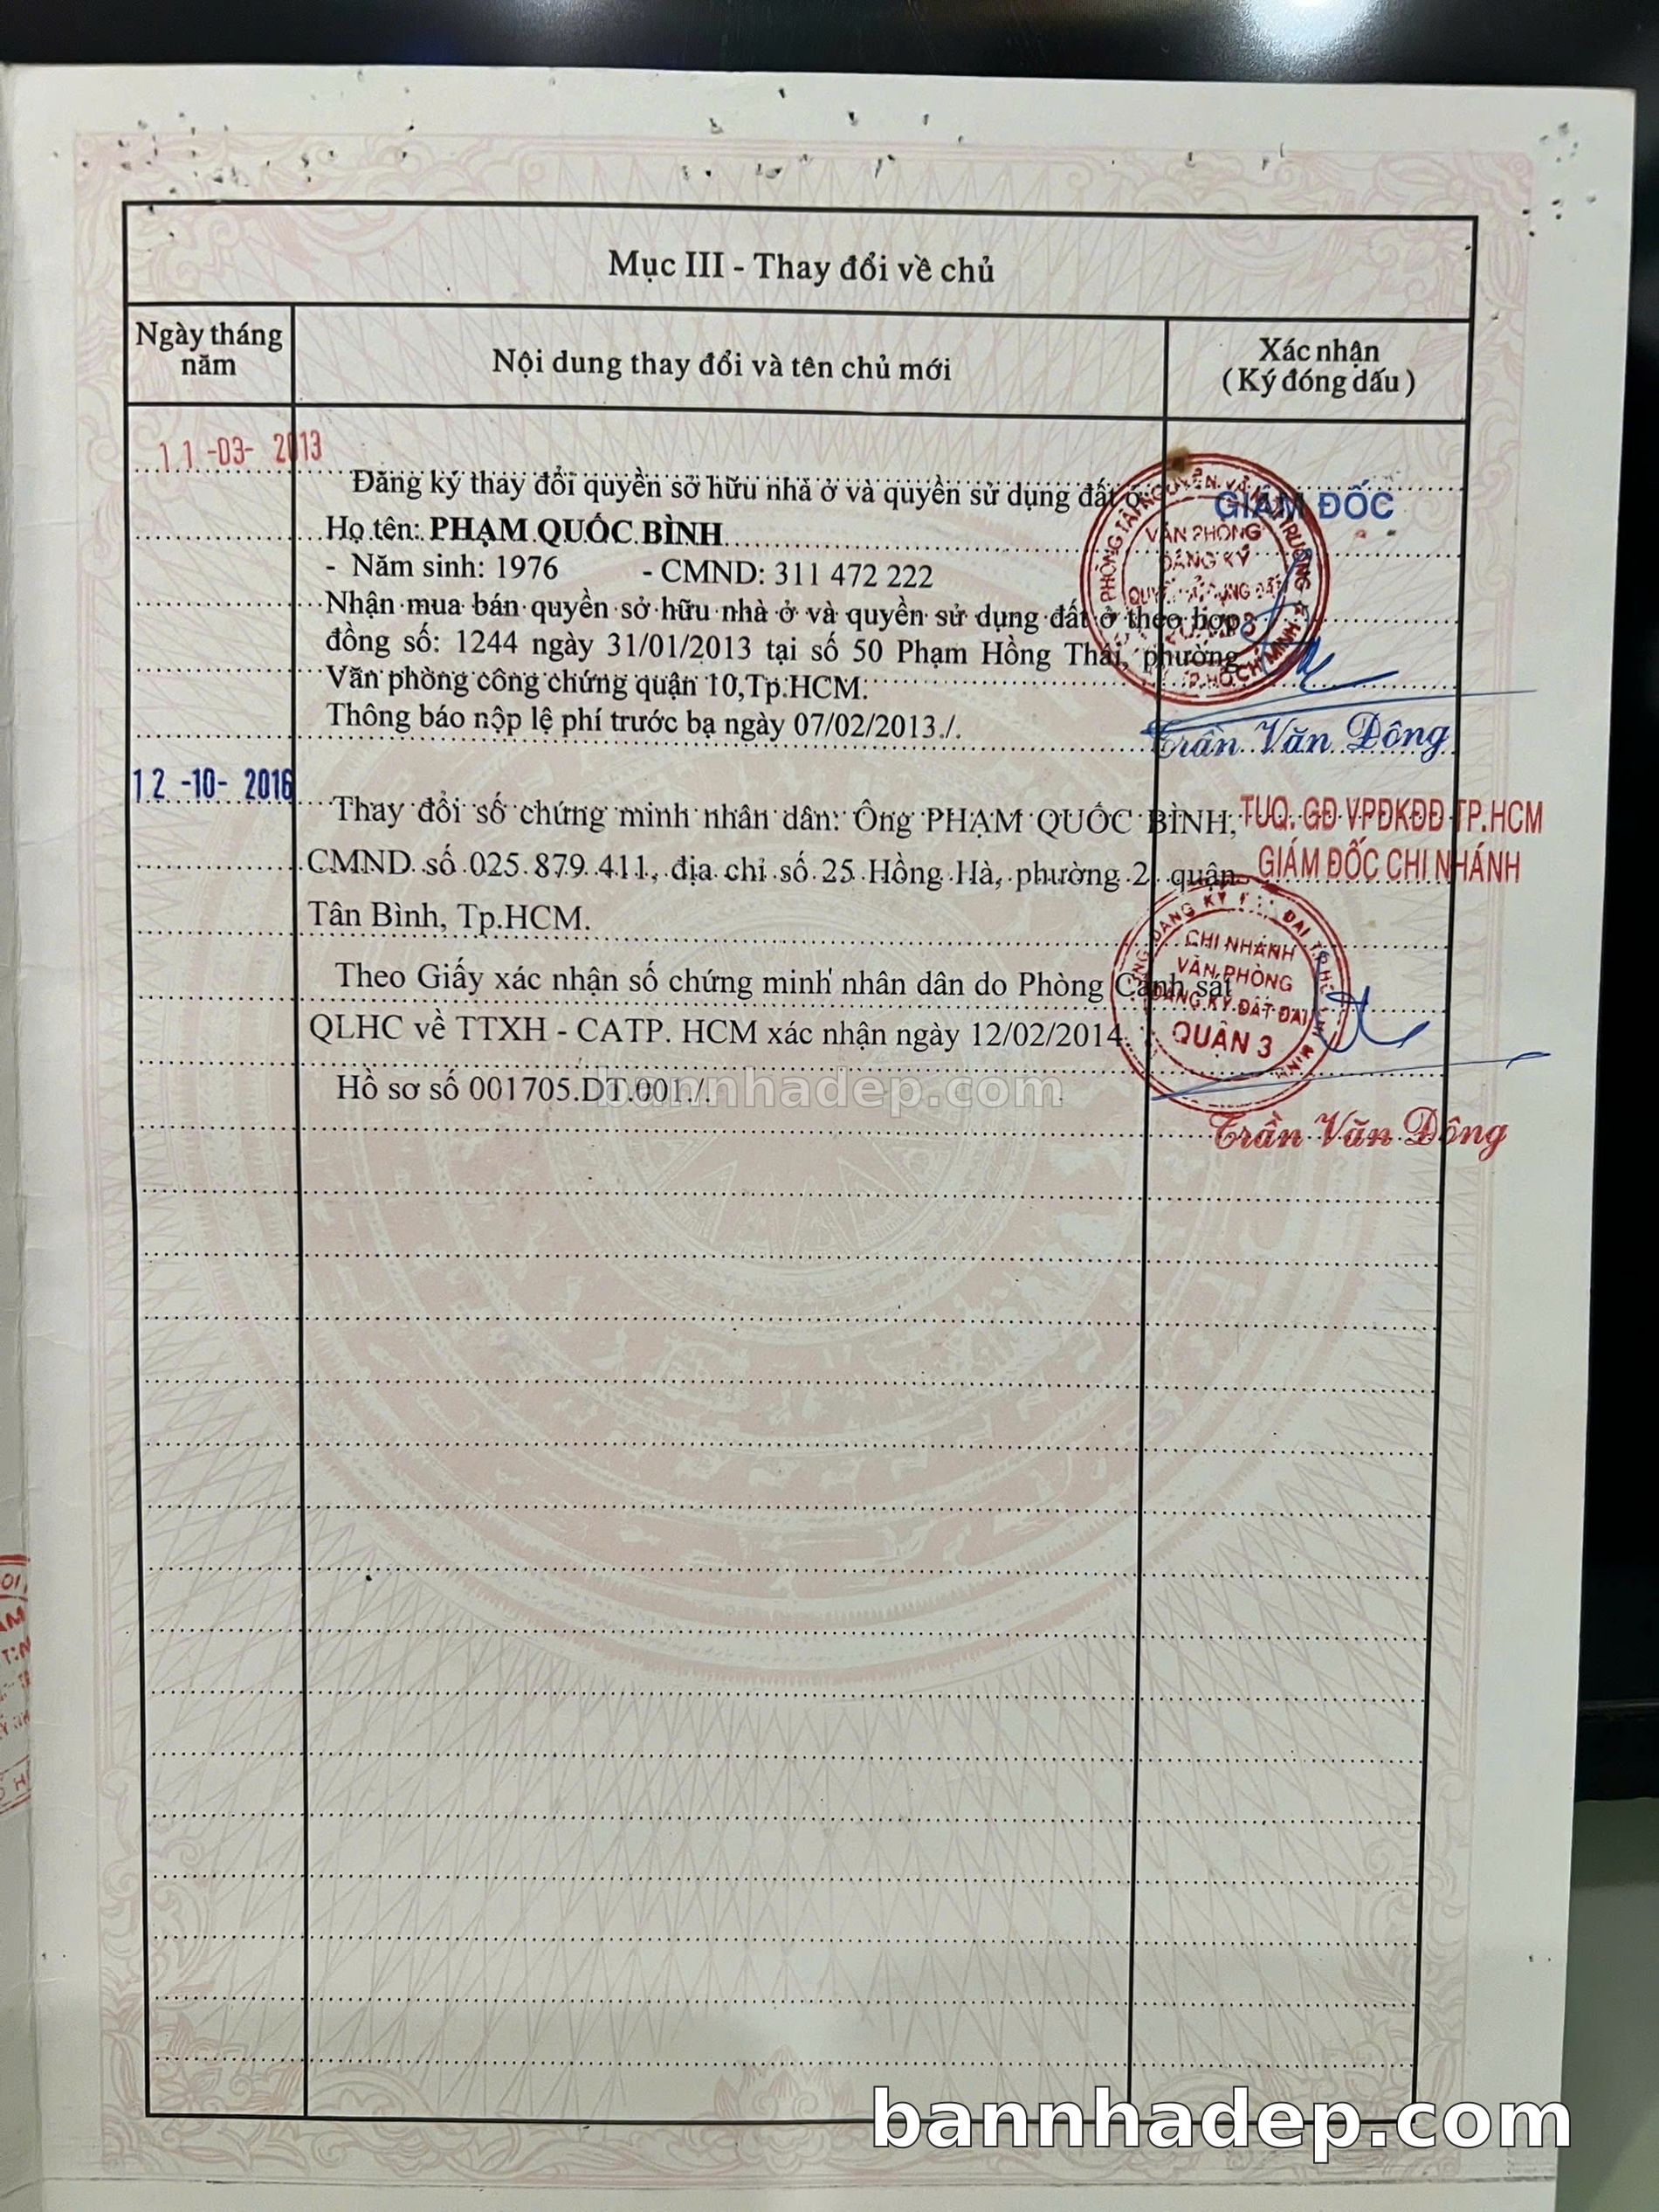 Mục III - Thay đổi về chủ
Ngày tháng năm
Nội dung thay đổi và tên chủ mới
Xác nhận
( Ký đóng dấu )
11 -03- 2013
Đăng ký thay đổi quyền sở hữu nhà ở và quyền sử dụng đất ở
Họ tên: PHẠM QUỐC BÌNH
- Năm sinh: 1976 - CMND: 311 472 222
Nhận mua bán quyền sở hữu nhà ở và quyền sử dụng đất ở theo hợp
đồng số: 1244 ngày 31/01/2013 tại số 50 Phạm Hồng Thái, phường
Văn phòng công chứng quận 10,Tp.HCM.
Thông báo nộp lệ phí trước bạ ngày 07/02/2013./.
GIÁM ĐỐC
VĂN PHÒNG
ĐĂNG KÝ
Trần Văn Đông
12 -10- 2016
Thay đổi số chứng minh nhân dân: Ông PHẠM QUỐC BÌNH,
CMND số 025.879.411, địa chỉ số 25 Hồng Hà, phường 2, quận
Tân Bình, Tp.HCM.
Theo Giấy xác nhận số chứng minh nhân dân do Phòng Cảnh sát
QLHC về TTXH - CATP. HCM xác nhận ngày 12/02/2014.
Hồ sơ số 001705.DT.001./.
TUQ. GĐ VPĐKĐĐ TP.HCM
GIÁM ĐỐC CHI NHÁNH
CHI NHÁNH
VĂN PHÒNG
ĐĂNG KÝ ĐẤT ĐAI
QUẬN 3
Trần Văn Đông
bannhadep.com
bannhadep.com